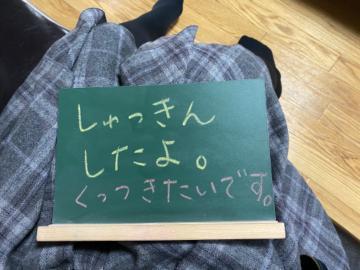 しゅっきん
したよ。
くっつきたいです。